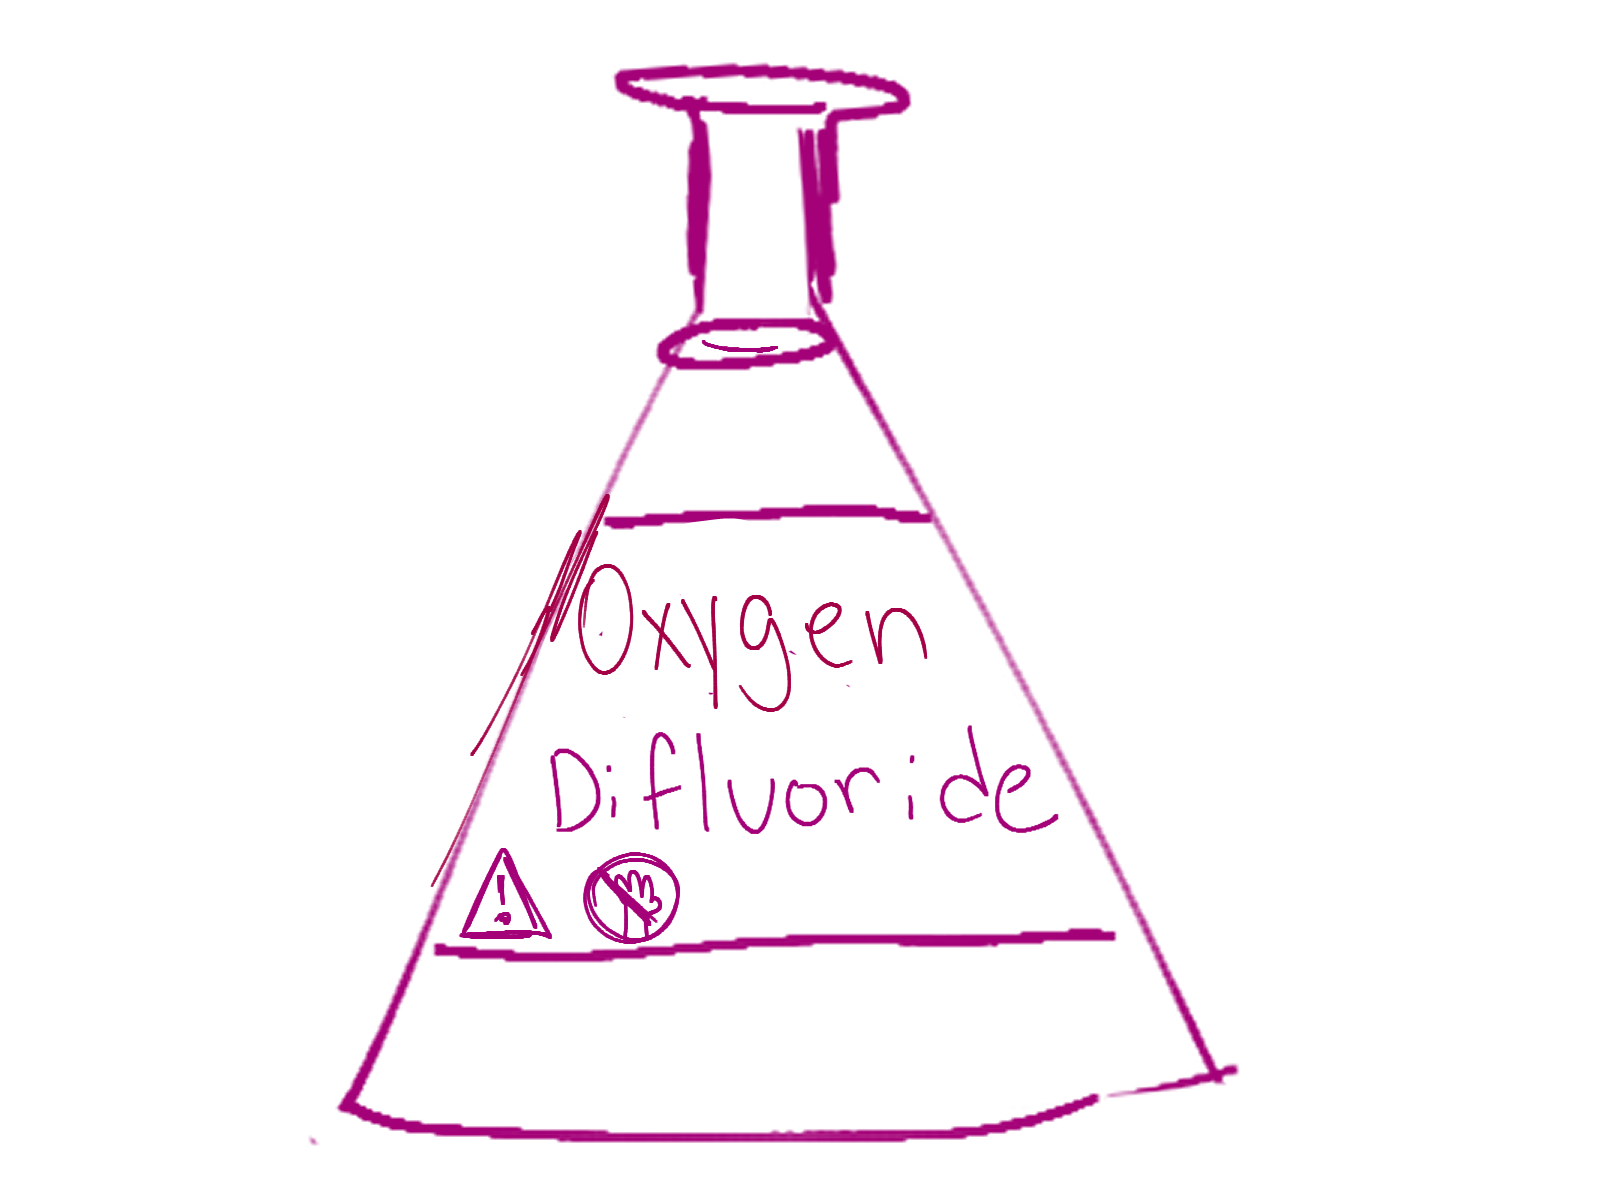 Oxygen
Difluoride
!